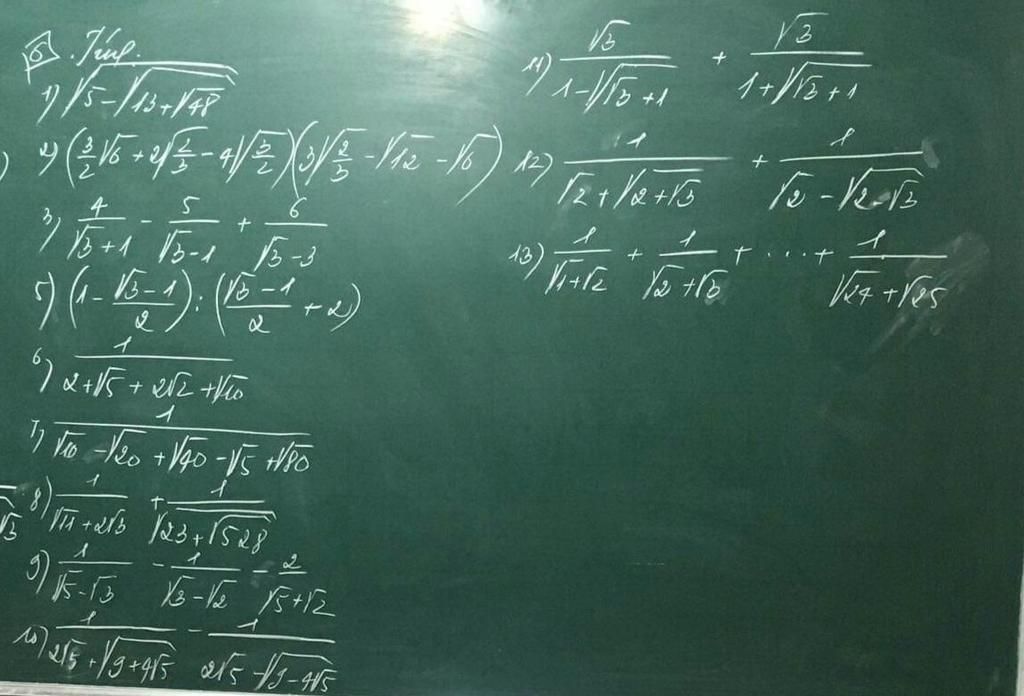 б.
1) √(5-√(13+√48))
2) (3/2 √6 + 2√(2/3) - 4√(3/2))(3√(2/3) - √12 - √6)
3) 4/(√3+1) - 5/(√3-1) + 6/(√3-3)
5) (1 - (√3-1)/2) : ((√3-1)/2 + 2)
6) 1/(2+√5+2√2+√10)
7) 1/(√10-√20+√40-√5+√80)
8) 1/(√11+2√3) + 1/√(23+√528)
9) 1/(√5-√3) - 1/(√3-√2) - 2/(√5+√2)
10) 1/(2√5+√(9+4√5)) - 1/(2√5-√(9-4√5))
11) √3/(1-√(√3+1)) + √3/(1+√(√3+1))
12) 1/(√2+√(2+√3)) + 1/(√2-√(2-√3))
13) 1/(√1+√2) + 1/(√2+√3) + ... + 1/(√24+√25)
√3
)